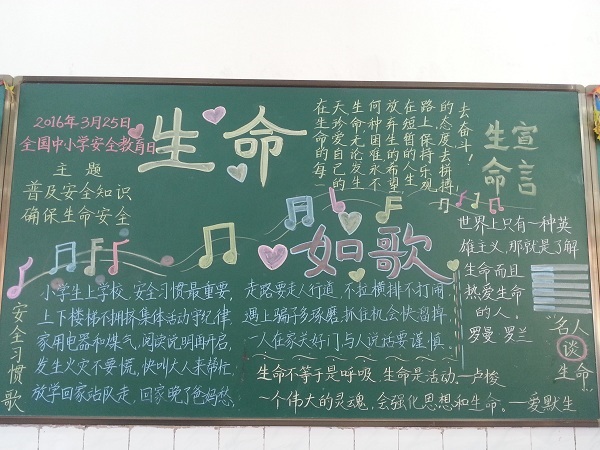 2016年3月25日
全国中小学安全教育日
主题
普及安全知识
确保生命安全
生命
如歌
在生命的每一
天珍爱自己的
生命无论发生
何种困难永不
放弃生的希望
在短暂的人生
路上保持乐观
的态度去拼搏
去奋斗!
生命
宣言
世界上只有一种英
雄主义,那就是了解
生命而且
热爱生命
的人。
罗曼 罗兰
名人
谈
生命
安全习惯歌
小学生上学校,安全习惯最重要,
上下楼梯不拥挤集体活动守纪律
家用电器和煤气,阅读说明再开启,
发生火灾不要慌,快叫大人来帮忙,
放学回家站队走,回家晚了爸妈愁,
走路要走人行道,不拉横排不打闹,
遇上骗子多琢磨,抓住机会快溜掉
一人在家关好门与人说话要谨慎.
生命不等于是呼吸,生命是活动.—卢梭
一个伟大的灵魂,会强化思想和生命。—爱默生